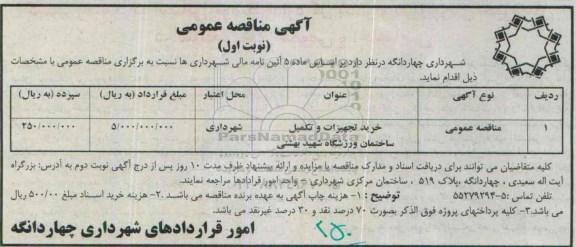 آگهی مناقصه عمومی
(نوبت اول)
شهرداری چهاردانگه درنظر دارد بر اساس ماده ۵ آئین نامه مالی شهرداری ها نسبت به برگزاری مناقصه عمومی با مشخصات
ذیل اقدام نماید.
ردیف نوع آگهی عنوان محل اعتبار مبلغ قرارداد (به ریال) سپرده (به ریال)
۱ مناقصه عمومی خرید تجهیزات و تکمیل شهرداری ۵/۰۰۰/۰۰۰/۰۰۰ ۲۵۰/۰۰۰/۰۰۰
ساختمان ورزشگاه شهید بهشتی
ParsNamadData
کلیه متقاضیان می توانند برای دریافت اسناد و مدارک مناقصه یا مزایده و ارائه پیشنهاد ظرف مدت ۱۰ روز پس از درج آگهی نوبت دوم به آدرس: بزرگراه
آیت اله سعیدی ، چهاردانگه ،پلاک ۵۱۹ ، ساختمان مرکزی شهرداری - واحد امور قراردادها مراجعه نمایند.
تلفن تماس :۵-۵۵۲۷۹۲۹۴ توضیح : ۱- هزینه چاپ آگهی به عهده برنده مناقصه می باشد. ۲- هزینه خرید اسناد مبلغ ۵۰۰/۰۰ ریال
می باشد.۳- کلیه پرداختهای پروژه فوق الذکر بصورت ۷۰ درصد نقد و ۳۰ درصد غیرنقد می باشد.
امور قراردادهای شهرداری چهاردانگه
۲۵۰